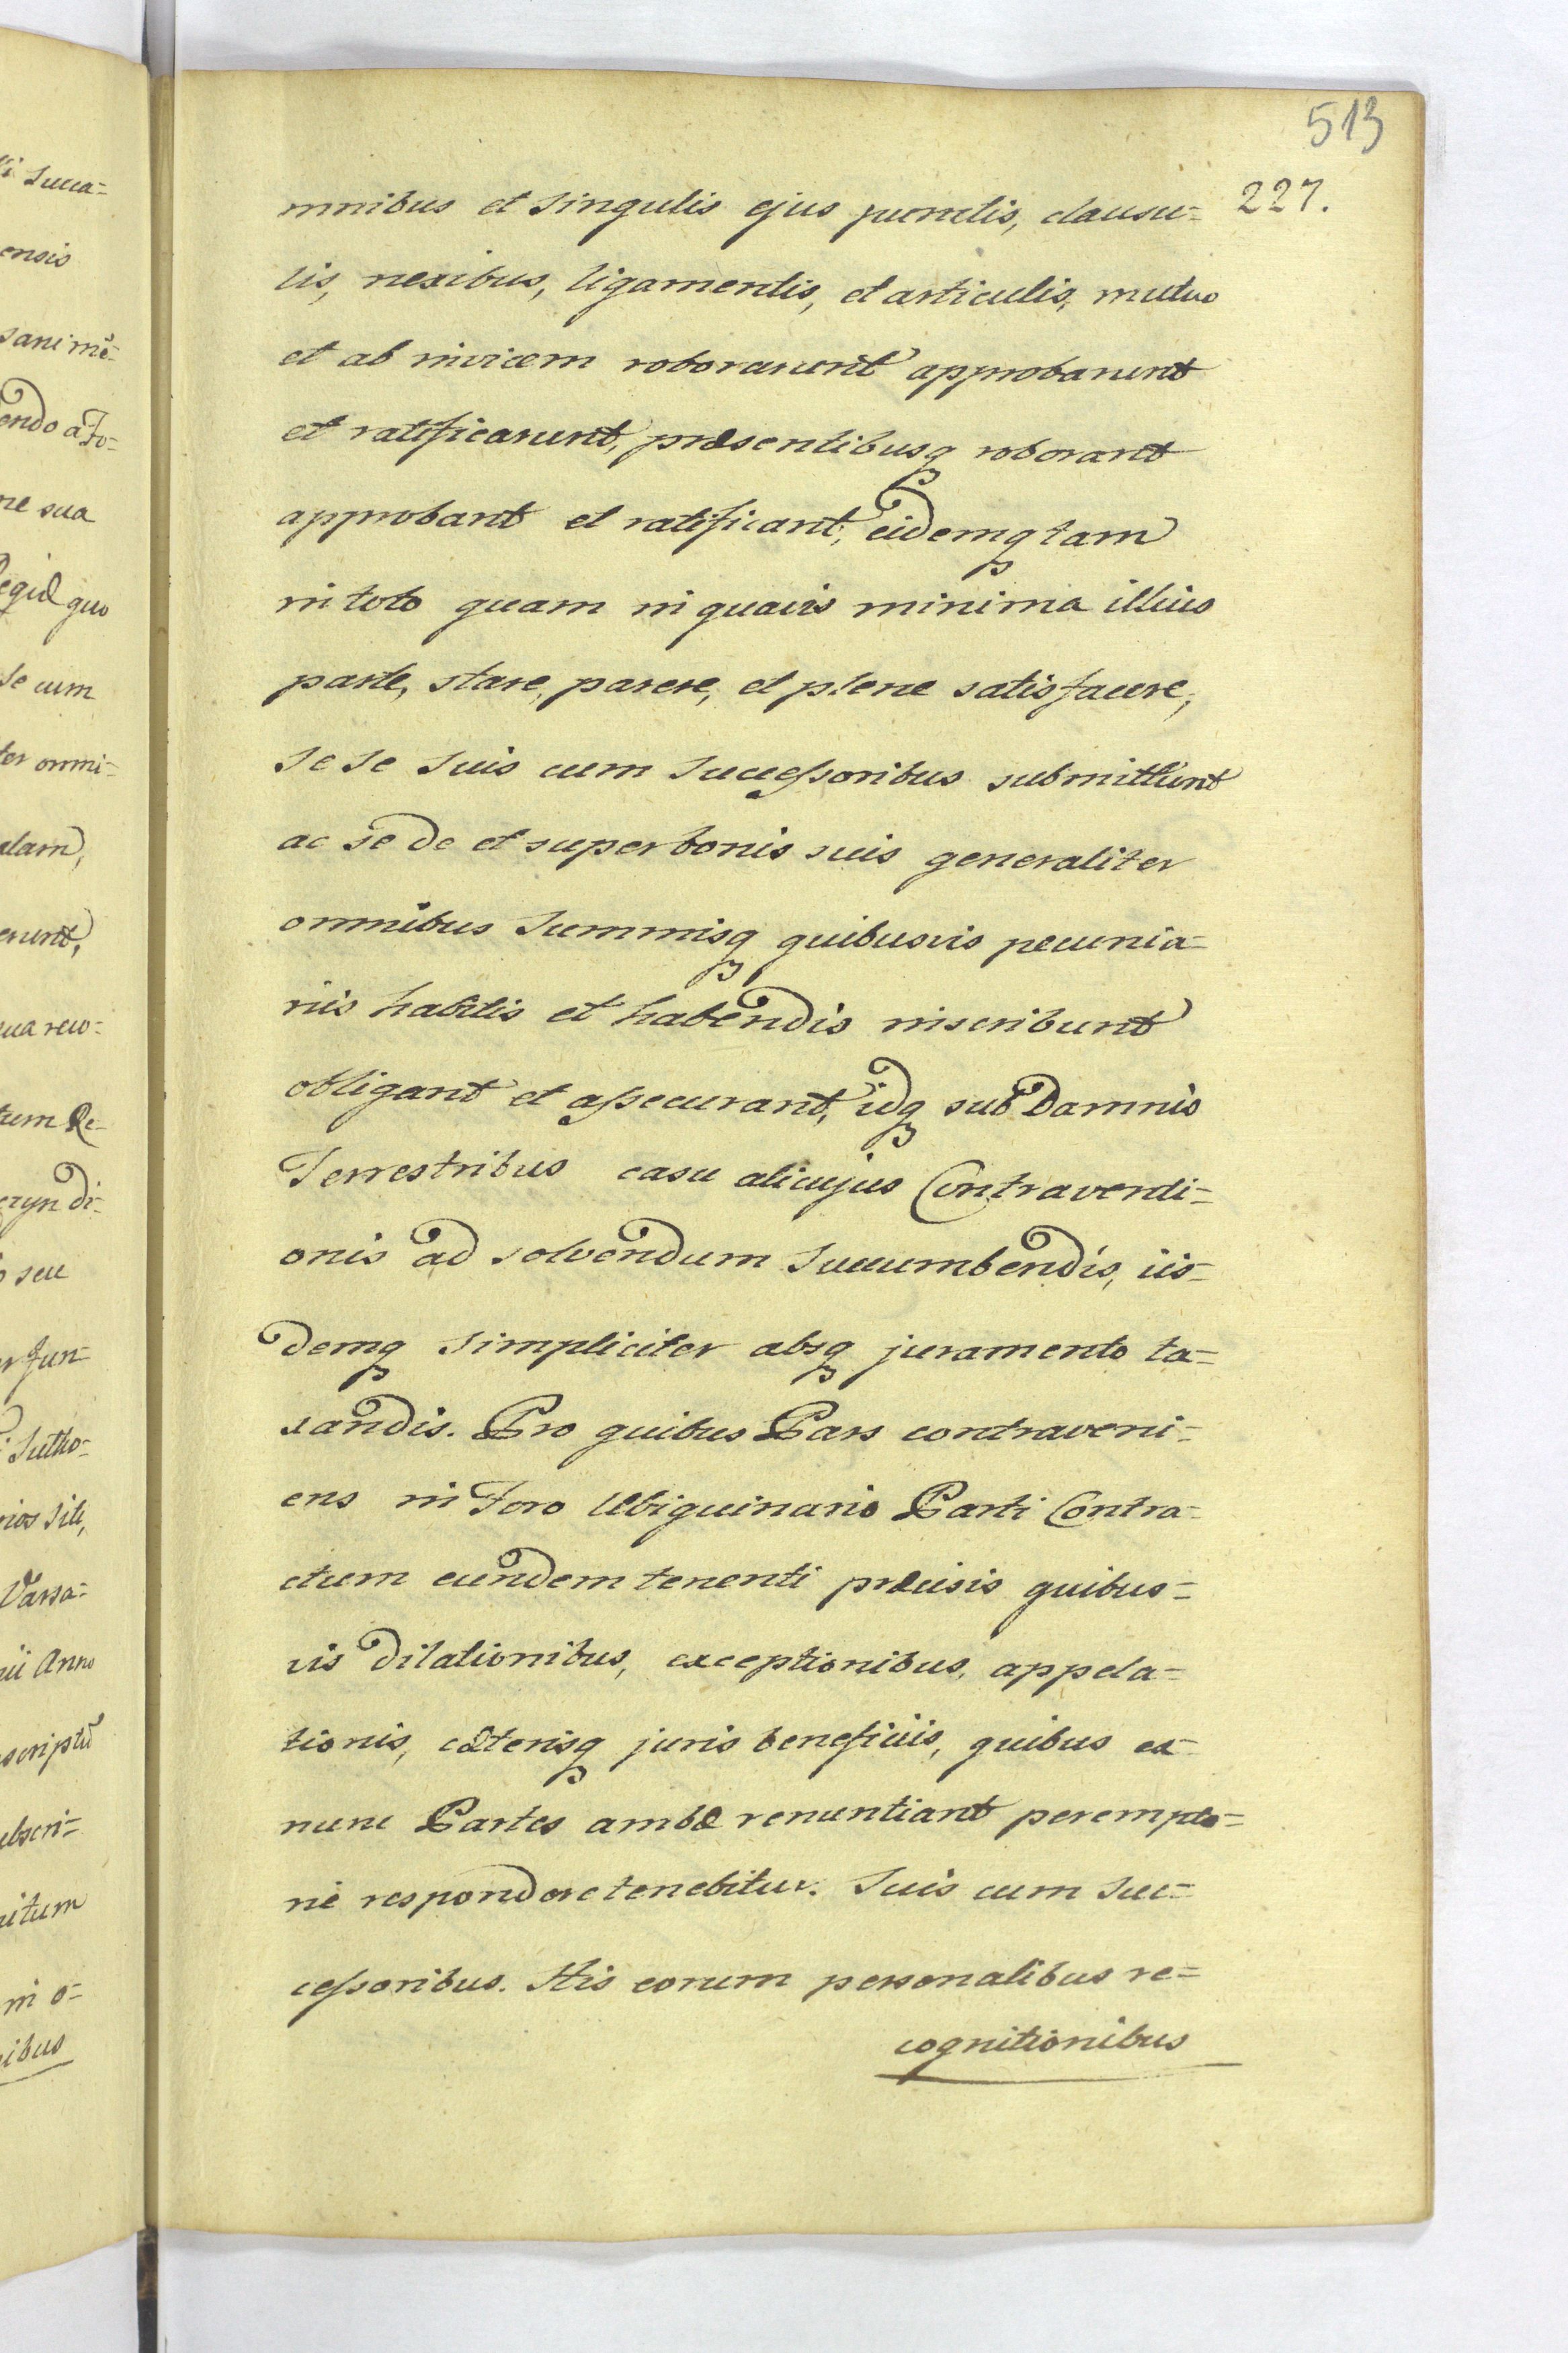 513
227.
mnibus et singulis ejus punctis, clausu=
lis, nexibus, ligamentis, et articulis, mutuo
et ab invicem roborarunt approbarunt
et ratificarunt, præsentibusq roborant
approbant et ratificant, eidemq tam
in toto quam in quavis minima illius
parte, stare, parere, et plene satisfacere,
se se suis cum Successoribus submittunt
ac se de et super bonis suis generaliter
omnibus Summisq quibusvis pecunia=
riis habitis et habendis inscribunt
obligant et assecurant, idq sub Damnis
Terrestribus casu alicujus Contraventi=
onis ad solvendum Succumbendis, iis=
demq simpliciter absq juramento ta=
xandis. Pro quibus Pars contraveni=
ens in Foro Ubiquinario Parti Contra=
ctum eundem tenenti præcisis quibus=
vis dilationibus, exceptionibus, appela=
tionis, cæterisq juris beneficiis, quibus ex
nunc Partes ambæ renuntiant perempto=
rie respondere tenebitur. Suis cum Suc=
cessoribus. His eorum personalibus re=
cognitionibus
Succa=
ensis
sani mē=
endo a Fo=
ne sua
quo
se cum
ter omni=
erunt,
tum Re=
di=
seu
Jun=
Varsa=
Anno
scriptū
in o=
ibus